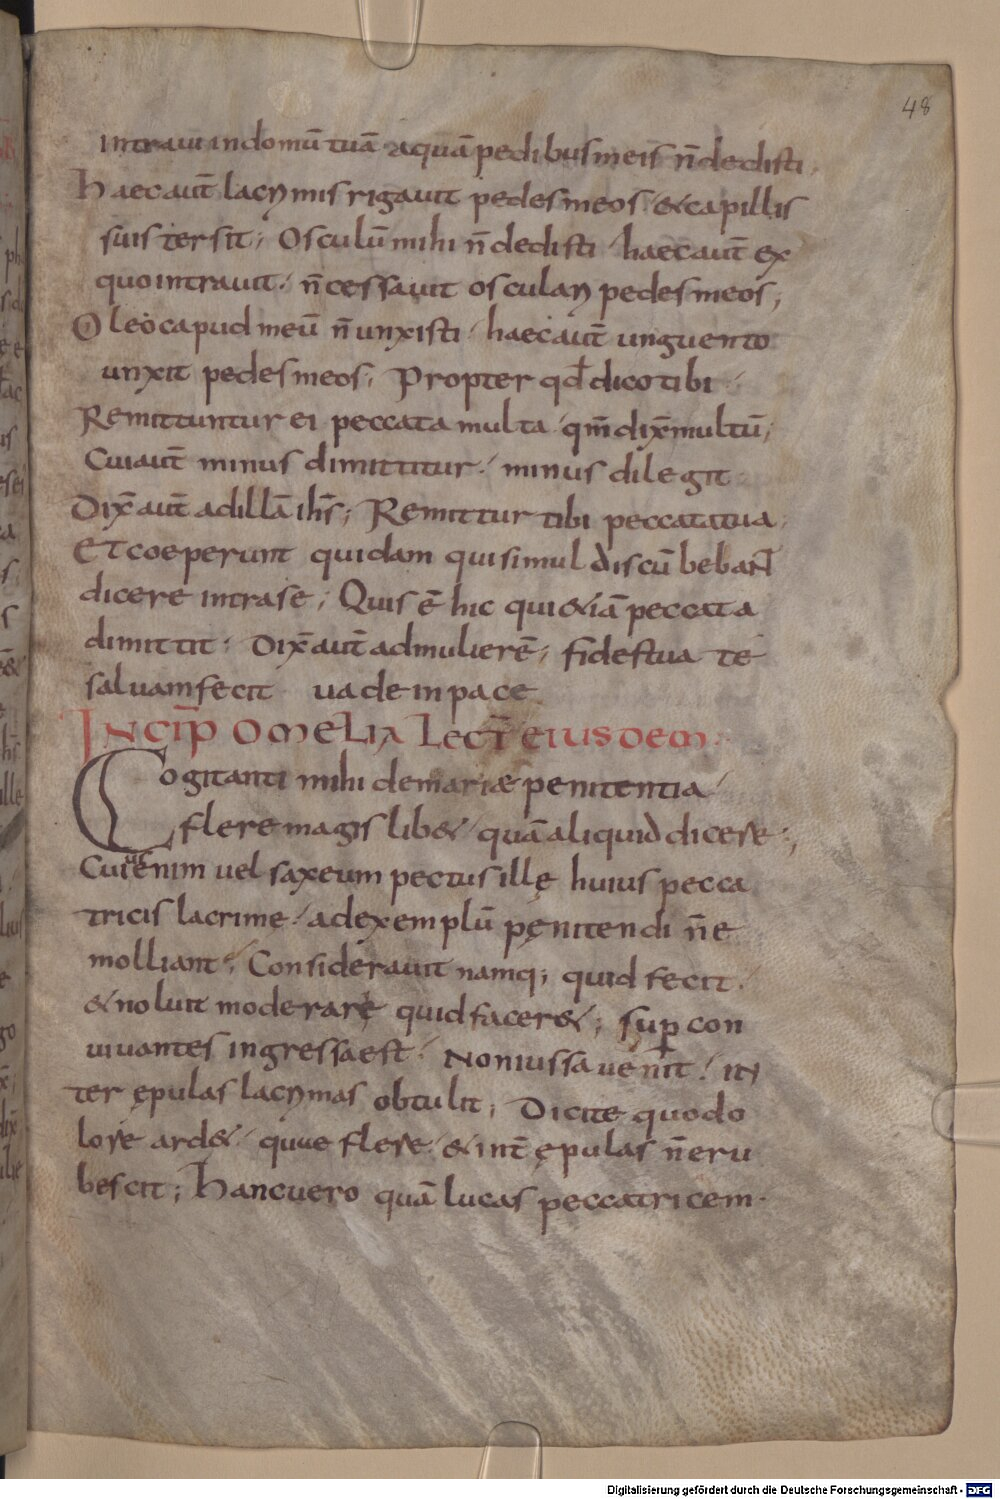 48
intraui in domū tuā aquā pedibus meis n̄ dedisti.
Haec aut̄ lacrymis rigauit pedes meos / & capillis
suis tersit; Osculū mihi n̄ dedisti / haec aut̄ ex
quo intrauit / n̄ cessauit osculari pedes meos;
Oleo capud meū n̄ unxisti / haec aut̄ unguento
unxit pedes meos; Propter qd̄ dico tibi /
Remittuntur ei peccata multa / qm̄ dix̄ multū;
Cui aut̄ minus dimittitur / minus dilegit
Dix̄ aut̄ ad illā ih̄s; Remittur tibi peccata tua;
Et coeperunt quidam qui simul discū beban̄t
dicere intra se; Quis ē hic qui & iā peccata
dimittit; Dix̄ aut̄ ad mulierē; fides tua te
saluam fecit uade in pace
INCIP̄ OMELIA LECT̄ EIUSDEM.
Cogitanti mihi de mariae penitentia /
flere magis lib& / quā aliquid dicere;
Cuius enim uel saxeum pectus ille huius pecca
tricis lacrime / ad exemplū penitendi n̄ e
molliant; Considerauit namq; quid fecit /
& noluit moderare quid facer&; sup̄ con
uiuantes ingressa est / Non iussa uenit / in
ter ępulas lacrymas obtulit; Dicite quo do
lore ard& / que flere / & int̄ ępulas n̄ eru
bescit; Hanc uero quā lucas peccatricem.
Digitalisierung gefördert durch die Deutsche Forschungsgemeinschaft - DFG